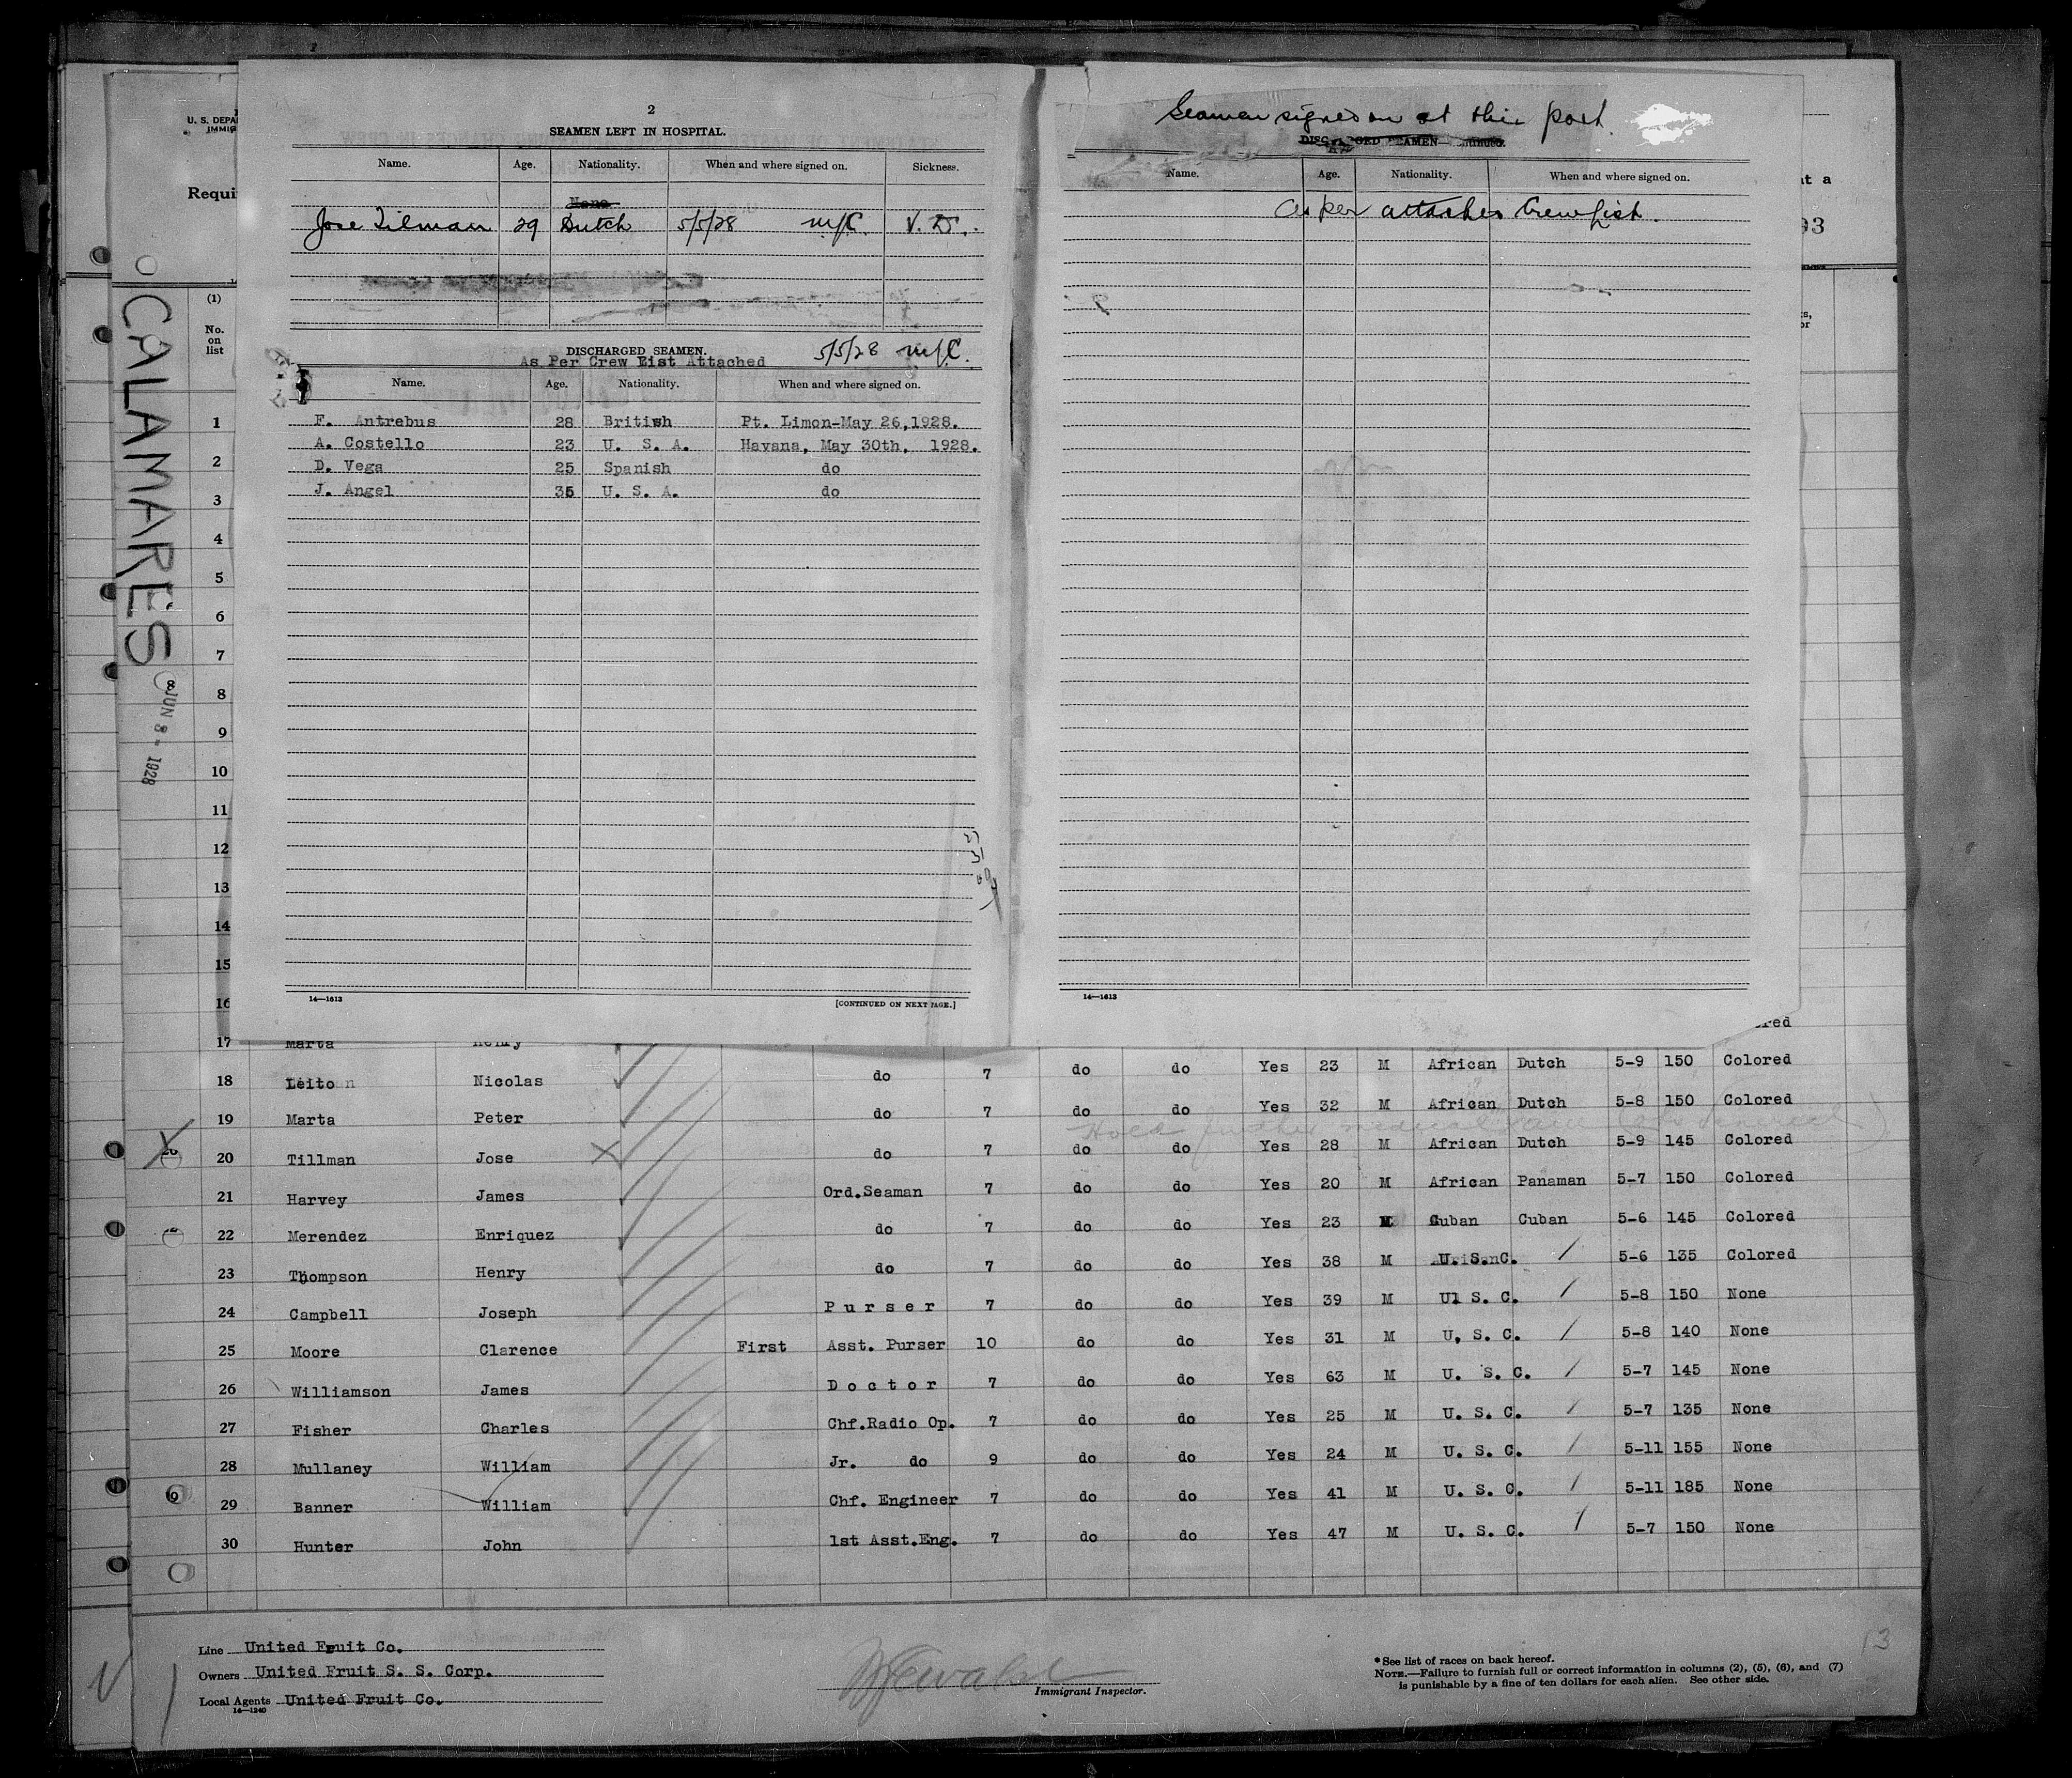 2
SEAMEN LEFT IN HOSPITAL.
Name. Age. Nationality. When and where signed on. Sickness.
None
Jose Tilman 29 Dutch 5/5/28 V. D.
DISCHARGED SEAMEN. 5/5/28
As Per Crew List Attached
Name. Age. Nationality. When and where signed on.
F. Antrebus 28 British Pt. Limon-May 26,1928.
A. Costello 23 U. S. A. Havana, May 30th, 1928.
D. Vega 25 Spanish do
J. Angel 35 U. S. A. do
14—1613 [CONTINUED ON NEXT PAGE.]
Seamen signed on at this port.
DISCHARGED SEAMEN—Continued.
Name. Age. Nationality. When and where signed on.
As per attached Crewlist.
14—1613
U. S. DEPA
IMMIG
Requi
(1)
No.
on
list
CALAMARES
JUN 8 - 1928
t a
93
1
2
3
4
5
6
7
8
9
10
11
12
13
14
15
16
17 Marta Henry
18 Leito Nicolas do 7 do do Yes 23 M African Dutch 5-9 150 Colored
19 Marta Peter do 7 do do Yes 32 M African Dutch 5-8 150 Colored
20 Tillman Jose do 7 do do Yes 28 M African Dutch 5-9 145 Colored
21 Harvey James Ord.Seaman 7 do do Yes 20 M African Panaman 5-7 150 Colored
22 Merendez Enriquez do 7 do do Yes 23 M Cuban Cuban 5-6 145 Colored
23 Thompson Henry do 7 do do Yes 38 M U. S. C. 5-6 135 Colored
24 Campbell Joseph Purser 7 do do Yes 39 M U. S. C. 5-8 150 None
25 Moore Clarence First Asst. Purser 10 do do Yes 31 M U. S. C. 5-8 140 None
26 Williamson James Doctor 7 do do Yes 63 M U. S. C. 5-7 145 None
27 Fisher Charles Chf.Radio Op. 7 do do Yes 25 M U. S. C. 5-7 135 None
28 Mullaney William Jr. do 9 do do Yes 24 M U. S. C. 5-11 155 None
29 Banner William Chf. Engineer 7 do do Yes 41 M U. S. C. 5-11 185 None
30 Hunter John 1st Asst.Eng. 7 do do Yes 47 M U. S. C. 5-7 150 None
13
Line United Fruit Co.
Owners United Fruit S. S. Corp.
Local Agents United Fruit Co.
14—1240
Immigrant Inspector.
*See list of races on back hereof.
NOTE.—Failure to furnish full or correct information in columns (2), (5), (6), and (7)
is punishable by a fine of ten dollars for each alien. See other side.